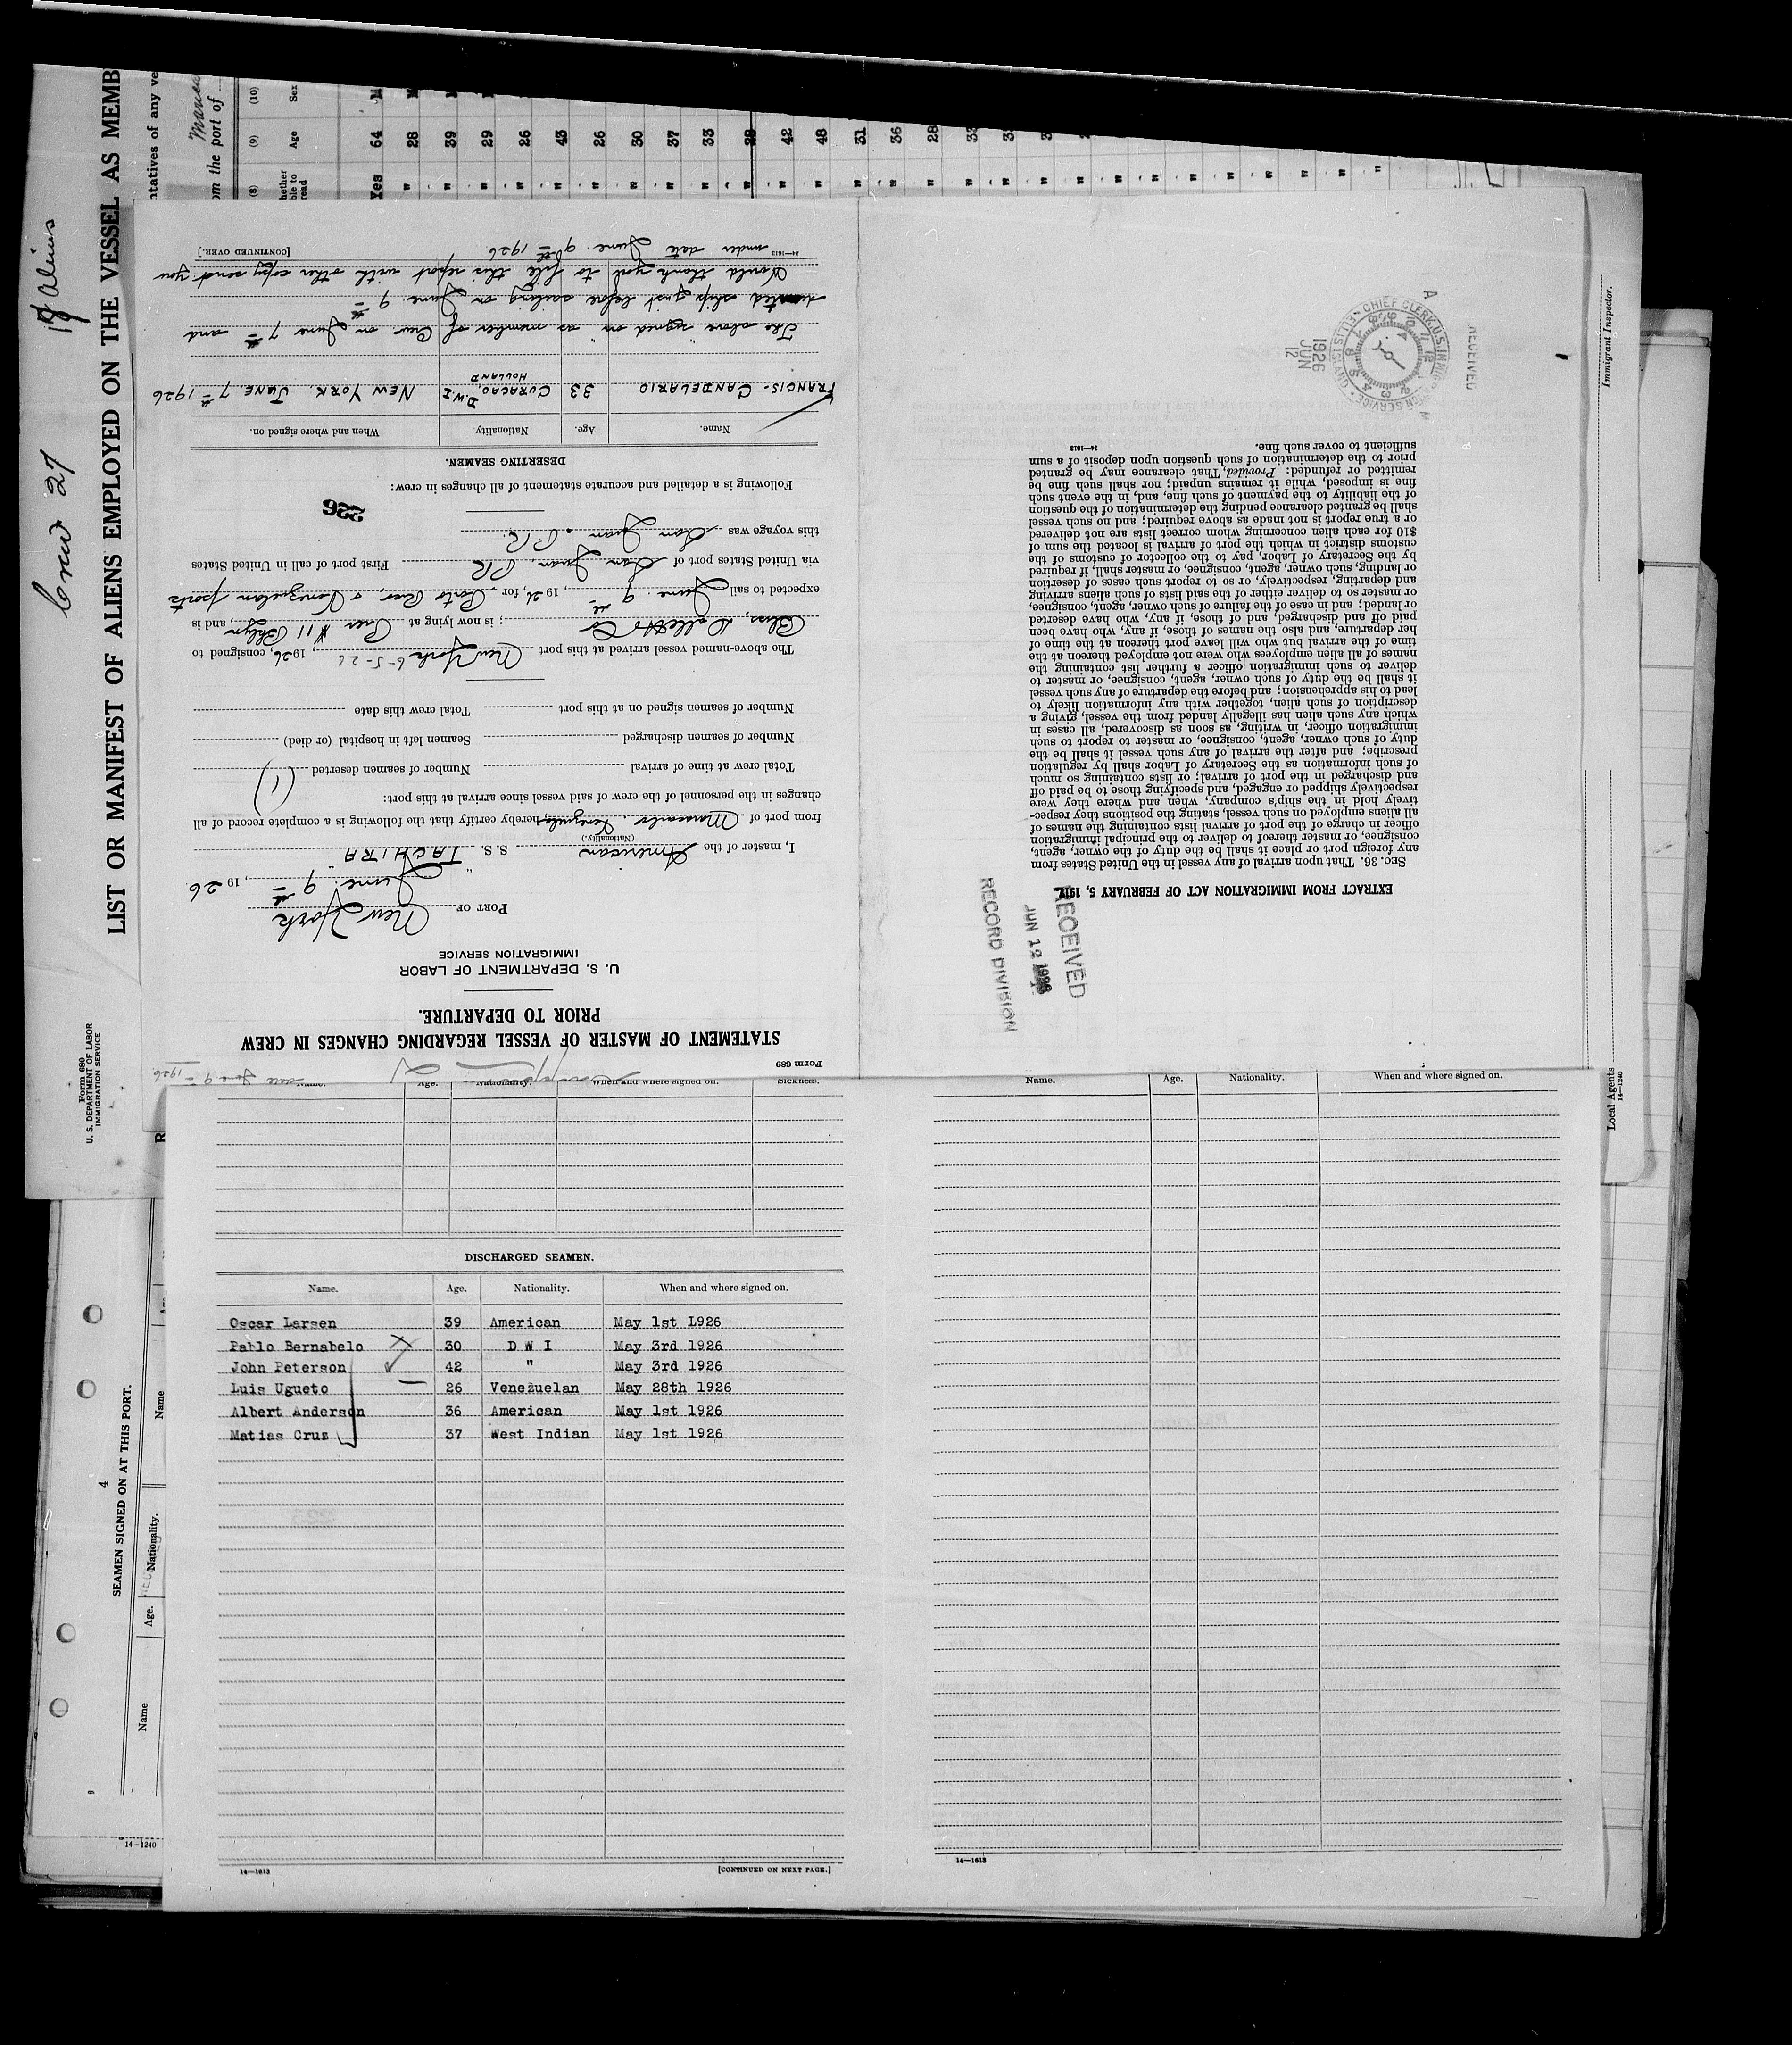 Crew 27
17 Aliens
LIST OR MANIFEST OF ALIENS EMPLOYED ON THE VESSEL AS MEMB
ntatives of any ve
om the port of
(8) (9) (10)
hether able to read Age Sex
Yes 64 M
" 28 M
" 39
" 29
" 26
" 43
" 26
" 30
" 37
" 33
" 28
" 42
" 48
" 31
" 36
" 28
Form 680
U. S. DEPARTMENT OF LABOR
IMMIGRATION SERVICE
Immigrant Inspector.
Local Agents
14—1240
Form 689
STATEMENT OF MASTER OF VESSEL REGARDING CHANGES IN CREW
PRIOR TO DEPARTURE.
U. S. DEPARTMENT OF LABOR
IMMIGRATION SERVICE
PORT OF New York
June 9th, 19 26
I, master of the American S. S. "TACHIRA"
(Nationality.)
from port of Maracaibo. Venezuela hereby certify that the following is a complete record of all
changes in the personnel of the crew of said vessel since arrival at this port:
Total crew at time of arrival Number of seamen deserted (1)
Number of seamen discharged Seamen left in hospital (or died)
Number of seamen signed on at this port Total crew this date
The above-named vessel arrived at this port New York 6-5-26, 1926, consigned to
Bliss, Dallett & Co; is now lying at Pier #11 Bklyn, and is
expected to sail June 9th, 19 26, for Porto Rico, & Venezuelan ports
via United States port of San Juan, P.R. First port of call in United States
this voyage was San Juan. P.R.
226
Following is a detailed and accurate statement of all changes in crew:
DESERTING SEAMEN.
Name. Age. Nationality. When and where signed on.
FRANCIS- CANDELARIO 33 CURACAO, D.W.I HOLLAND NEW YORK. JUNE 7th 1926
The above "signed on" as member of Crew on June 7th and
deserted ship just before sailing on June 9th
Would thank you to file this report with other copy send you
under date June 9th 1926
14—1613 [CONTINUED OVER.]
RECEIVED
JUN 12 1926
RECORD DIVISION
EXTRACT FROM IMMIGRATION ACT OF FEBRUARY 5, 1917.
SEC. 36. That upon arrival of any vessel in the United States from
any foreign port or place it shall be the duty of the owner, agent,
consignee, or master thereof to deliver to the principal immigration
officer in charge of the port of arrival lists containing the names of
all aliens employed on such vessel, stating the positions they respec-
tively hold in the ship's company, when and where they were
respectively shipped or engaged, and specifying those to be paid off
and discharged in the port of arrival; or lists containing so much
of such information as the Secretary of Labor shall by regulation
prescribe; and after the arrival of any such vessel it shall be the
duty of such owner, agent, consignee, or master to report to such
immigration officer, in writing, as soon as discovered, all cases in
which any such alien has illegally landed from the vessel, giving a
description of such alien, together with any information likely to
lead to his apprehension; and before the departure of any such vessel
it shall be the duty of such owner, agent, consignee, or master to
deliver to such immigration officer a further list containing the
names of all alien employees who were not employed thereon at the
time of the arrival but who will leave port thereon at the time of
her departure, and also the names of those, if any, who have been
paid off and discharged, and of those, if any, who have deserted
or landed; and in case of the failure of such owner, agent, consignee,
or master so to deliver either of the said lists of such aliens arriving
and departing, respectively, or so to report such cases of desertion
or landing, such owner, agent, consignee, or master shall, if required
by the Secretary of Labor, pay to the collector of customs of the
customs district in which the port of arrival is located the sum of
$10 for each alien concerning whom correct lists are not delivered
or a true report is not made as above required; and no such vessel
shall be granted clearance pending the determination of the question
of the liability to the payment of such fine, and, in the event such
fine is imposed, while it remains unpaid; nor shall such fine be
remitted or refunded: Provided, That clearance may be granted
prior to the determination of such question upon deposit of a sum
sufficient to cover such fine.
14—1613
RECEIVED
1926 JUN 12
CHIEF CLERK, U.S. IMMIGRATION SERVICE ELLIS ISLAND
Name. Age. Nationality. When and where signed on. Sickness.
date June 9th 1926
DISCHARGED SEAMEN.
Name. Age. Nationality. When and where signed on.
Oscar Larsen 39 American May 1st 1926
Pablo Bernabelo 30 D W I May 3rd 1926
John Peterson 42 " May 3rd 1926
Luis Ugueto 26 Venezuelan May 28th 1926
Albert Anderson 36 American May 1st 1926
Matias Cruz 37 West Indian May 1st 1926
14—1613 [CONTINUED ON NEXT PAGE.]
Name. Age. Nationality. When and where signed on.
14—1613
4
SEAMEN SIGNED ON AT THIS PORT.
Name Age. Nationality. Name
14-1240